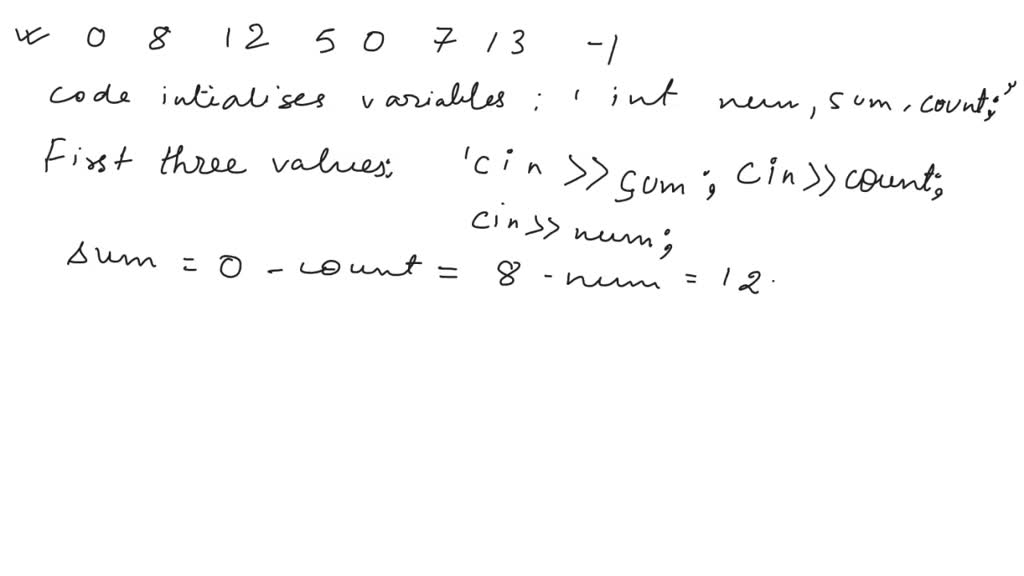 0 8 12 5 0 7 13 -1
code intialises variables : ' int num, sum, count;"
First three values: 'cin >> sum; cin>>count;
cin>> num;
sum = 0 - count = 8 - num = 12.